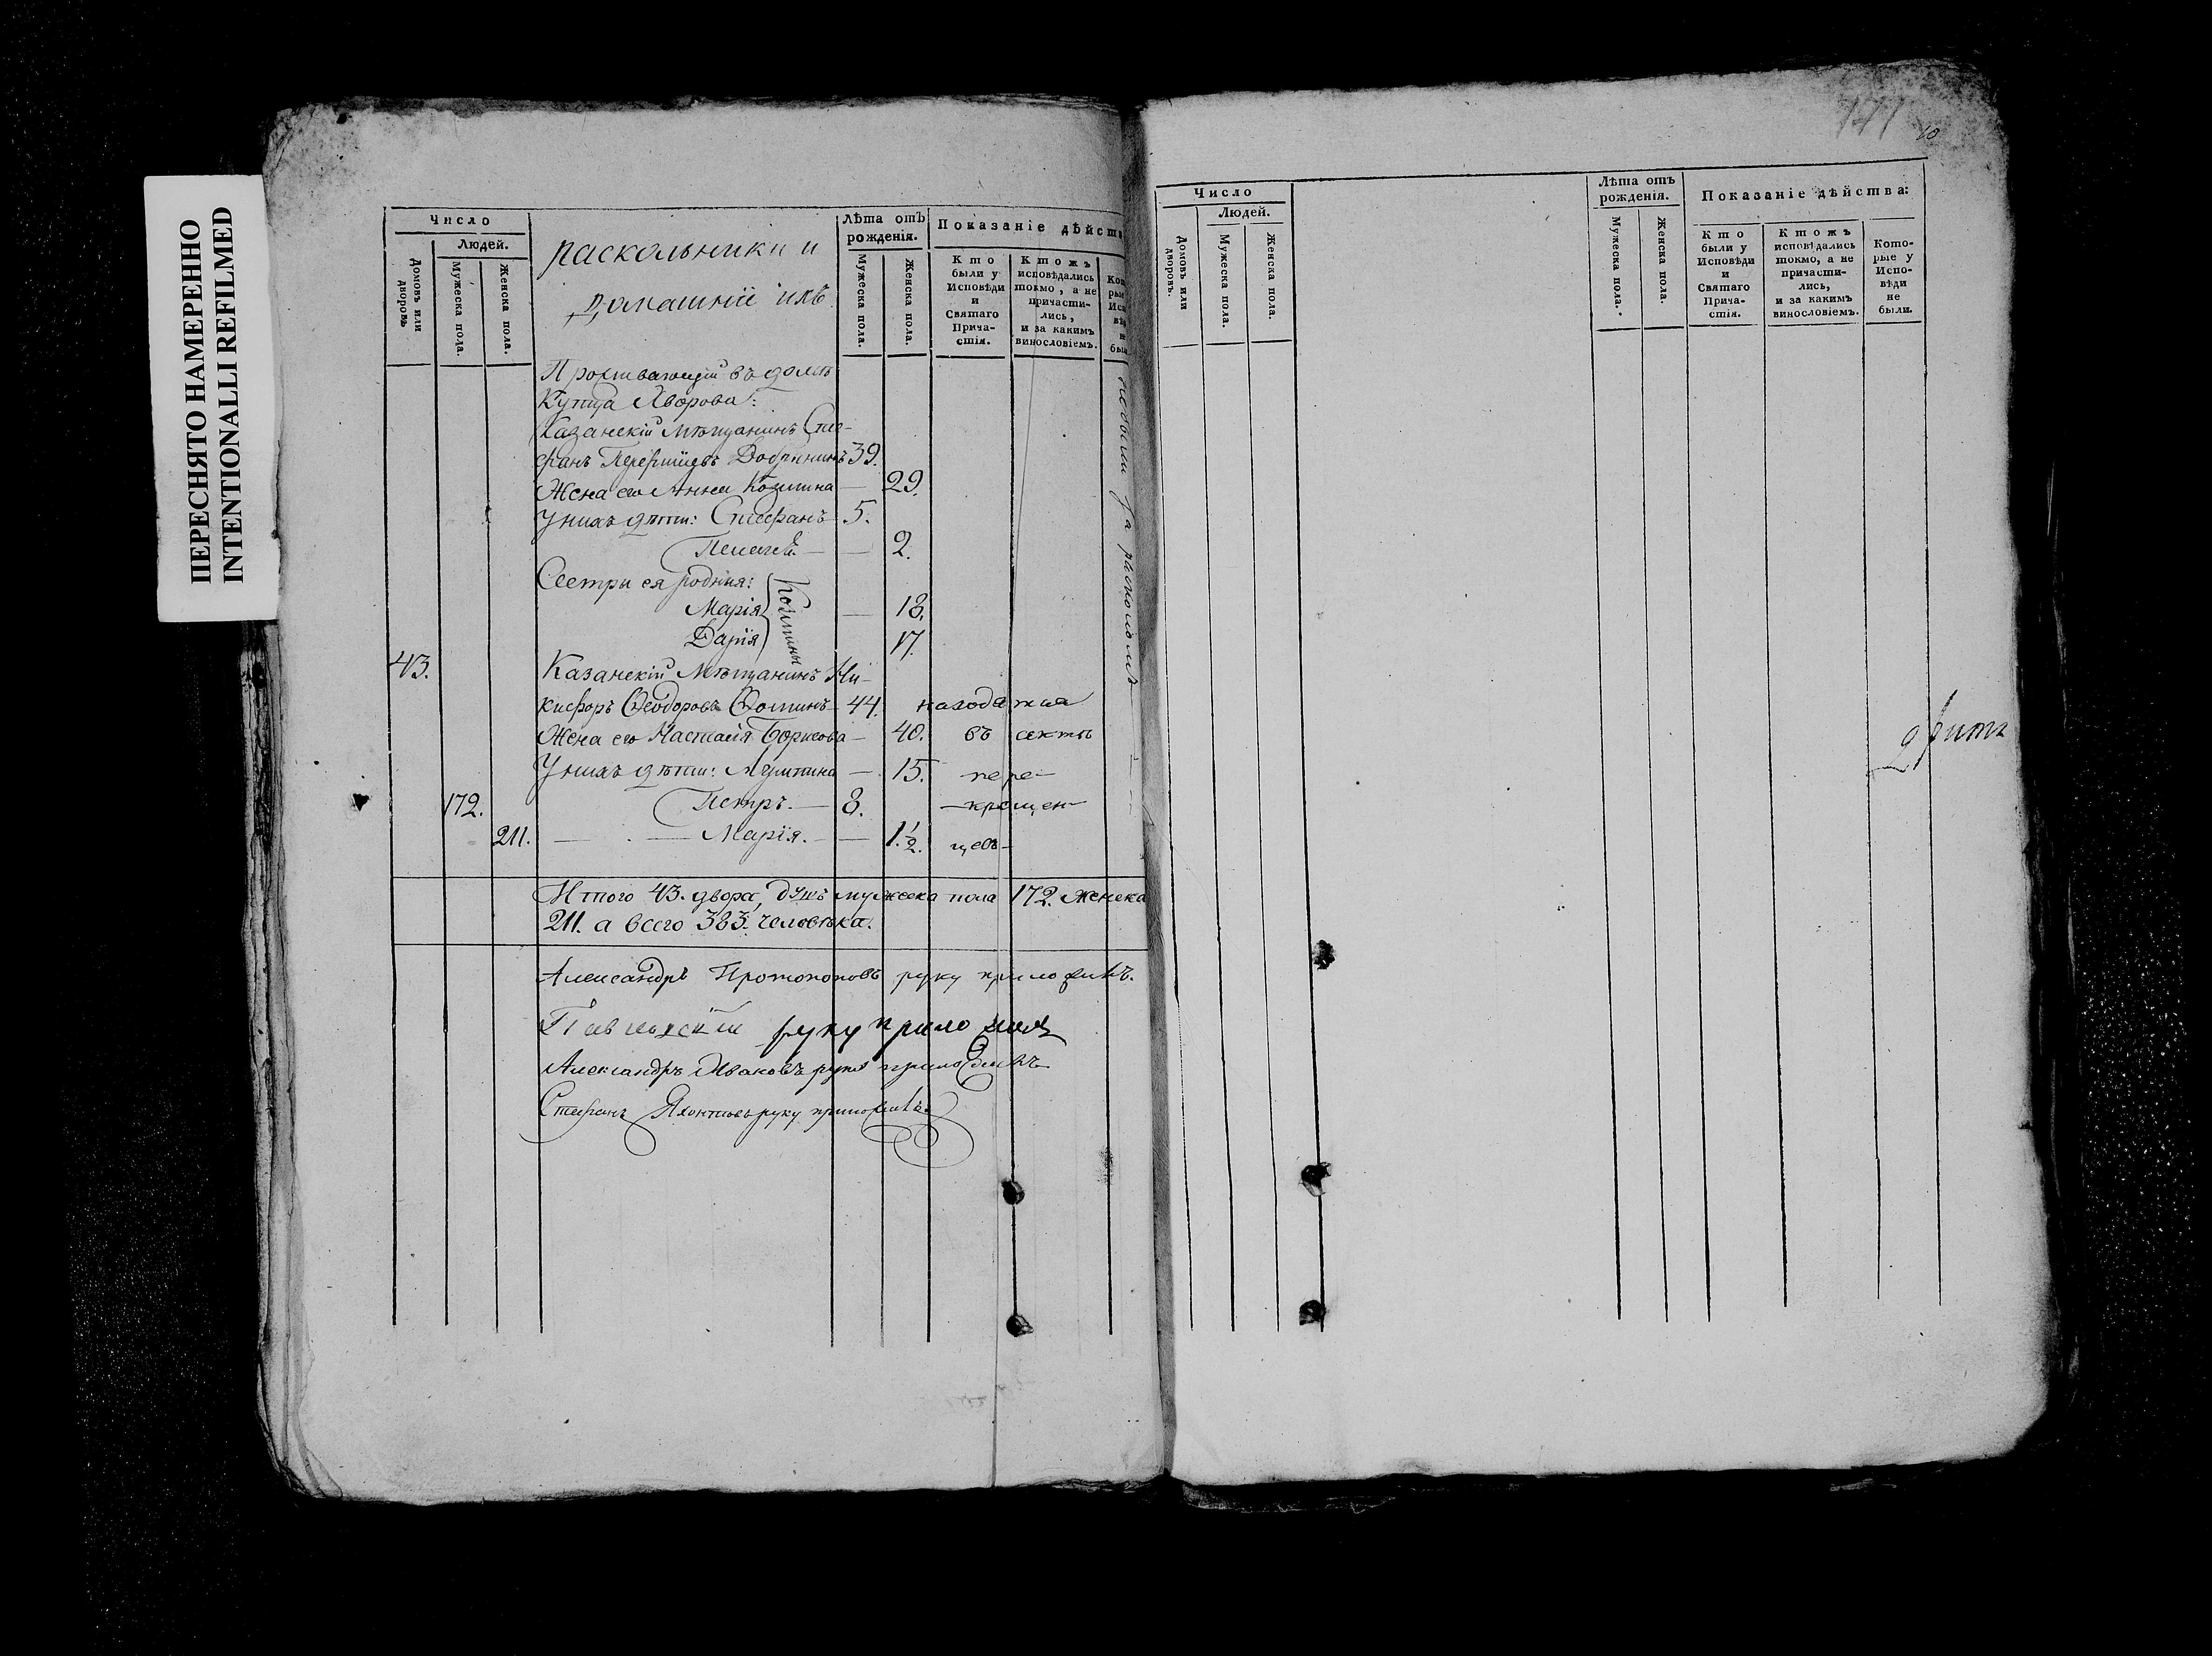 ПЕРЕСНЯТО НАМЕРЕННО
INTENTIONALLI REFILMED
Число
Людей.
Домовъ или дворовъ
Мужеска пола.
Женска пола.
раскольники и
домашніе ихъ
Лѣта отъ рожденія.
Мужеска пола.
Женска пола.
Показаніе дѣйств
Кто были у Исповѣди и Святаго Прича-стія.
Ктожъ исповѣдались токмо, а не причасти-лись, и за какимъ винословіемъ.
Проживающій въ домѣ
Купца Яворова:
Казанскій мѣщанинъ Сте-
фанъ Добрынинъ 39.
Жена его Анна Козмина — 29.
У нихъ дѣти: Стефанъ 5.
— 2.
Сестры ея родныя:
Марія — 18.
Дарія 17.
Козмины
не были за расколомъ
43. Казанскій Мѣщанинъ Ни-
кифоръ Ѳеодоровъ Ѳоминъ 44. находятся
Жена его Настасія Борисова — 40. въ сектѣ
У нихъ дѣти: — 15. пере-
172. Петръ. — 8. -крещен-
211. — — Марія. — 1½. цевъ-
Итого 43. двора, душъ мужеска пола 172. женска
211. а всего 383. человѣка.
Александръ Протопоповъ руку приложилъ.
руку приложилъ
Александръ Ивановъ руку приложилъ
Стефанъ руку приложилъ.
171
10
Число
Людей.
Домовъ или дворовъ.
Мужеска пола.
Женска пола.
Лѣта отъ рожденія.
Мужеска пола.
Женска пола.
Показаніе дѣйства:
Кто были у Исповѣди и Святаго Прича-стія.
Ктожъ исповѣдались токмо, а не причасти-лись, и за какимъ винословіемъ.
Кото-рые у Испо-вѣди не были.